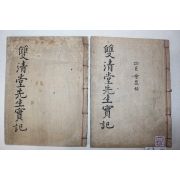 雙清堂先生實記
雙清堂先生實記